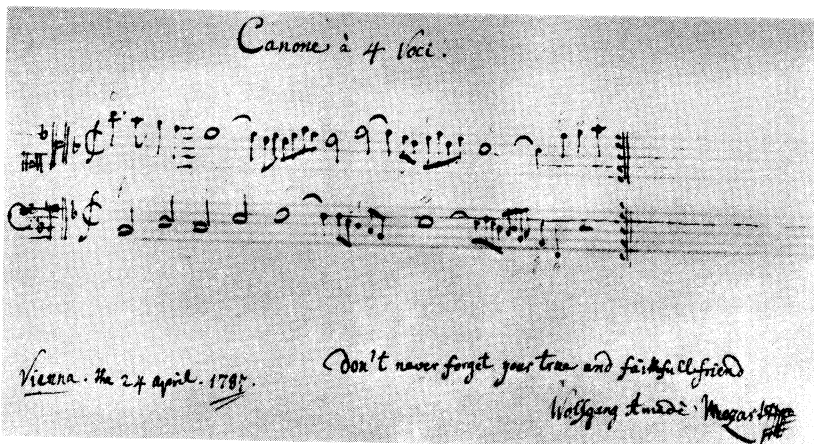 Canone à 4 Voci.
Vienna. the 24 april. 1787.
Don't never forget your true and faithfull friend
Wolfgang Amadè Mozart